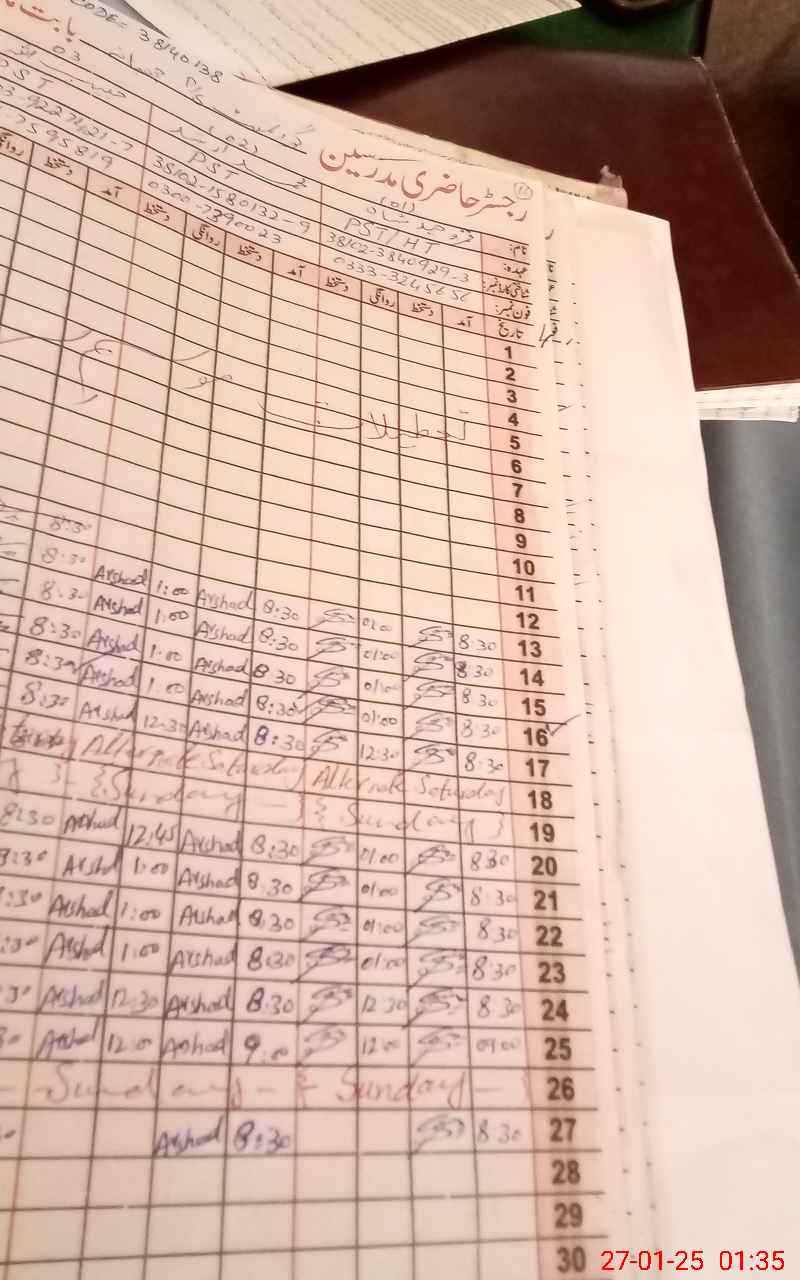 CODE= 38140138
رجسٹر حاضری مدرسین
نام:
(01)
(02)
03
عہدہ:
PST/HT
PST
PST
شناختی کارڈ نمبر:
38102-3840929-3
38102-1580132-9
03-9227421-7
فون نمبر:
0333-3245656
0300-7390023
7595819
تاریخ آمد دستخط روانگی دستخط آمد دستخط روانگی دستخط آمد دستخط
1
2
3
4
تعطیلات موسم
5
6
7
8
9
10
11
12
13 8:30 01:00 8:30 Arshad 1:00 Arshad 8:30
14 8:30 01:00 8:30 Arshad 1:00 Arshad 8:30
15 8:30 01:00 8:30 Arshad 1:00 Arshad 8:30
16 8:30 01:00 8:30 Arshad 1:00 Arshad 8:30
17 8:30 12:30 8:30 Arshad 12:30 Arshad 8:30
18 Alternate Saturday Alternate Saturday
19 { Sunday } { Sunday }
20 8:30 01:00 8:30 Arshad 12:45 Arshad 8:30
21 8:30 01:00 8:30 Arshad 1:00 Arshad 8:30
22 8:30 01:00 8:30 Arshad 1:00 Arshad
23 8:30 01:00 8:30 Arshad 1:00 Arshad
24 8:30 12:30 8:30 Arshad 12:30 Arshad
25 09:00 12:00 9:00 Arshad 12:00 Arshad
26 { Sunday } Sunday
27 8:30 8:30 Arshad
28
29
30
27-01-25 01:35